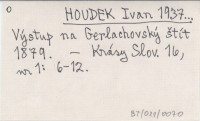 o HOUDEK Ivan 1937...
Výstup na Gerlachovský štít
1879. – Krásy Slov. 16,
nr 1: 6-12.